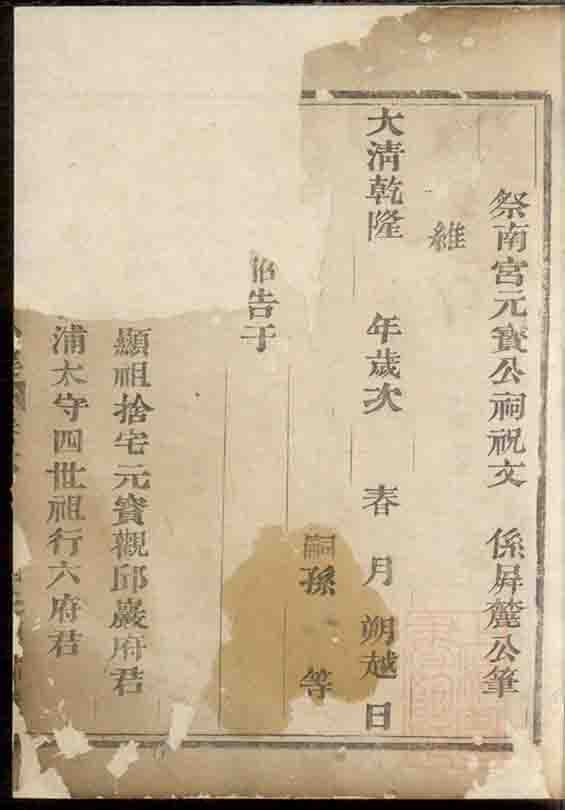 祭南宮元寶公祠祝文 係屏麓公筆
維
大清乾隆 年歲次 春 月 朔越 日
嗣孫 等
昭告于
顯祖捨宅元寶觀邱巖府君
浦太守四世祖行六府君